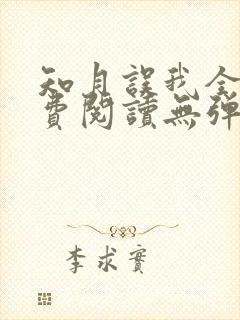 知月誤我全
費閱讀無彈
李求實